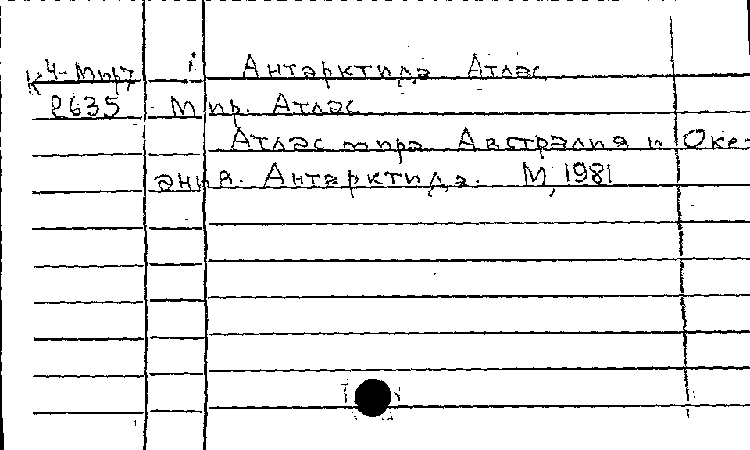 К4-Мир7 i Антарктида Атлас
2635 Мир. Атлас
Атлас мира Австралия и Оке-
ания. Антарктида. М, 1981